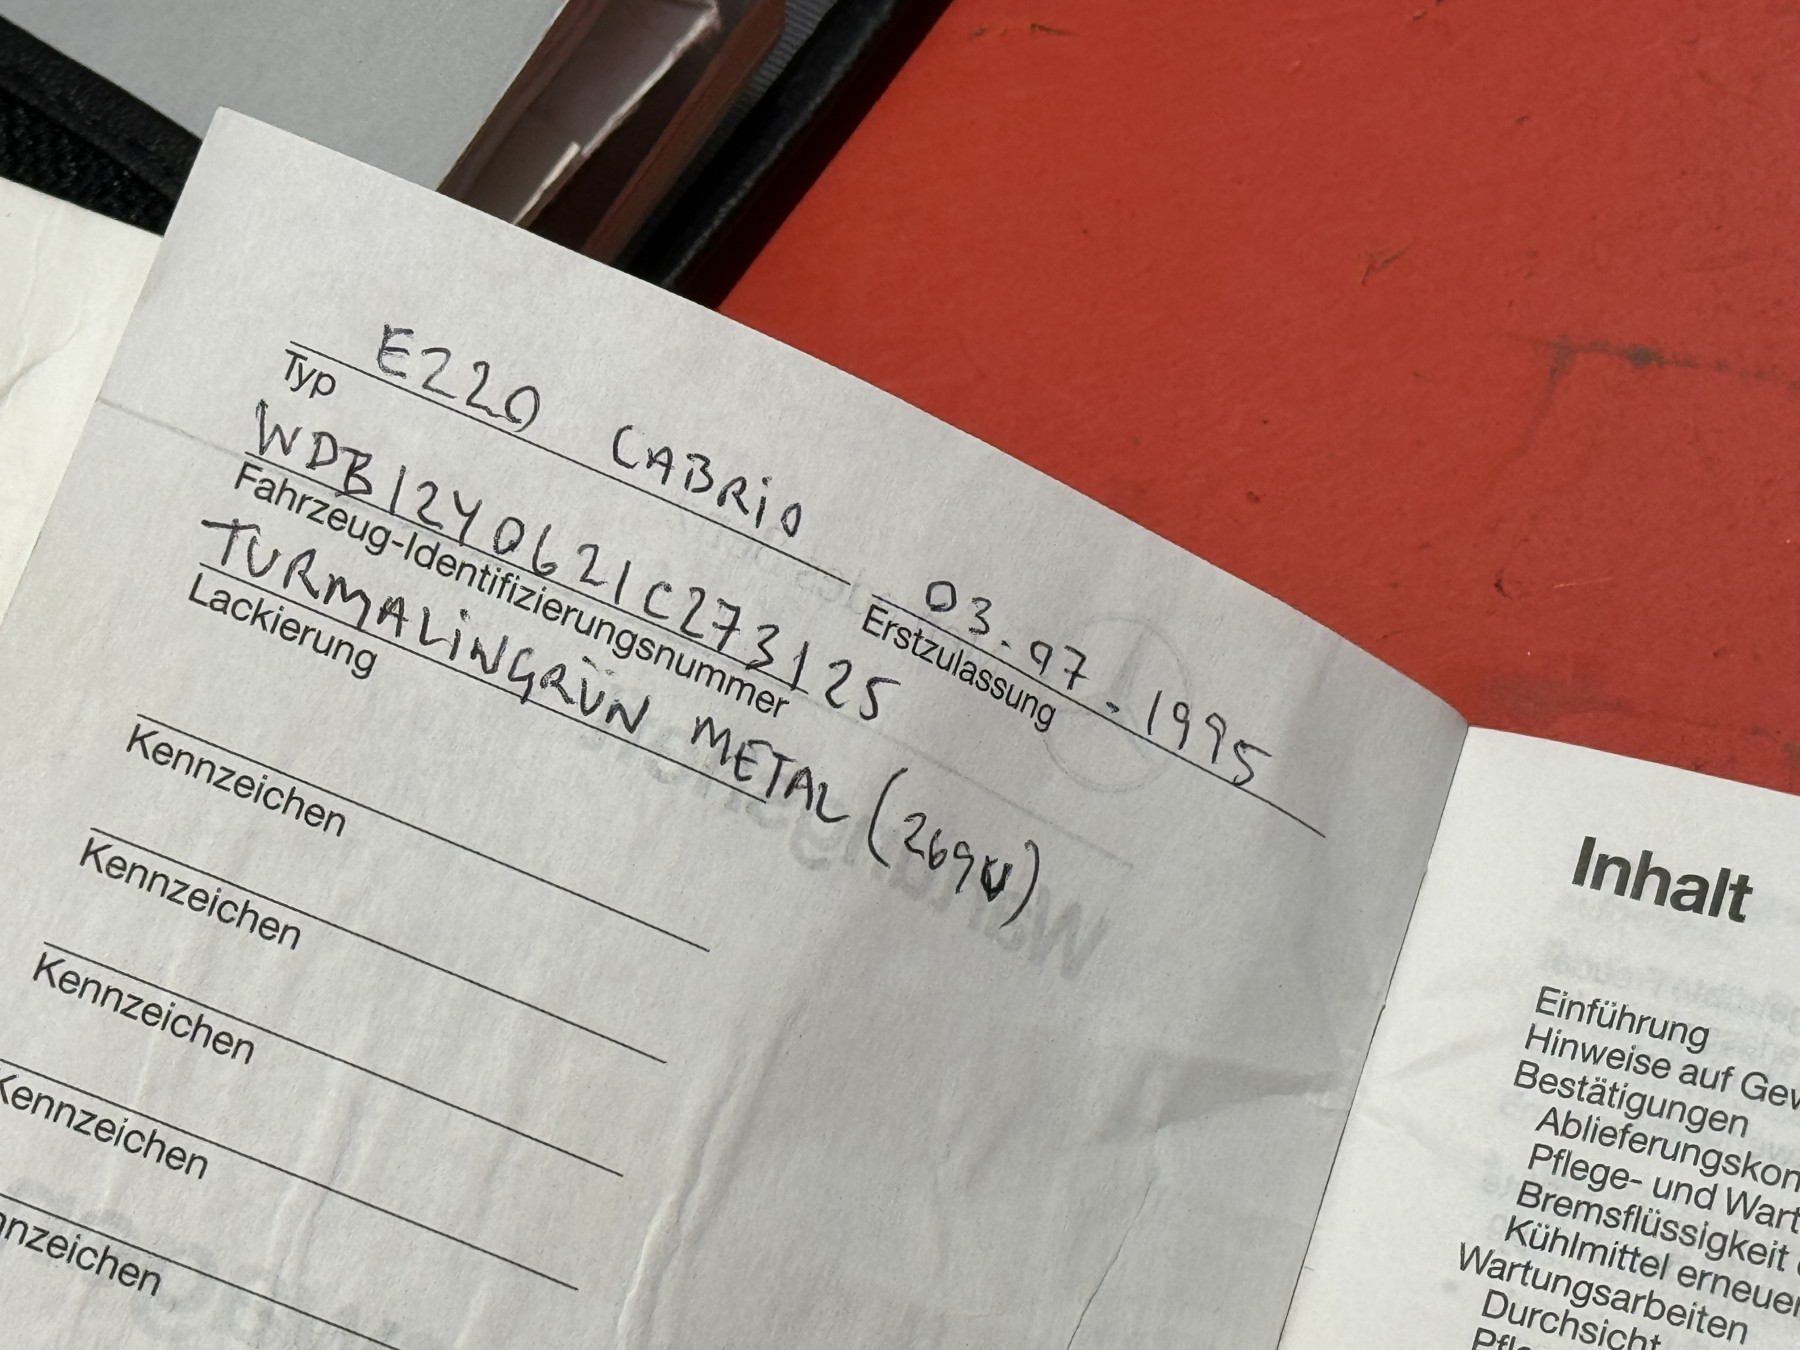 E220 CABRiO
Typ
WDB1240621C273125
Fahrzeug-Identifizierungsnummer
03.07.1995
Erstzulassung
TURMALiNGRÜN METAL (269U)
Lackierung
Kennzeichen
Kennzeichen
Kennzeichen
Kennzeichen
nnzeichen
Inhalt
Einführung
Hinweise auf Gew
Bestätigungen
Ablieferungskon
Pflege- und Wart
Bremsflüssigkeit
Kühlmittel erneuer
Wartungsarbeiten
Durchsicht